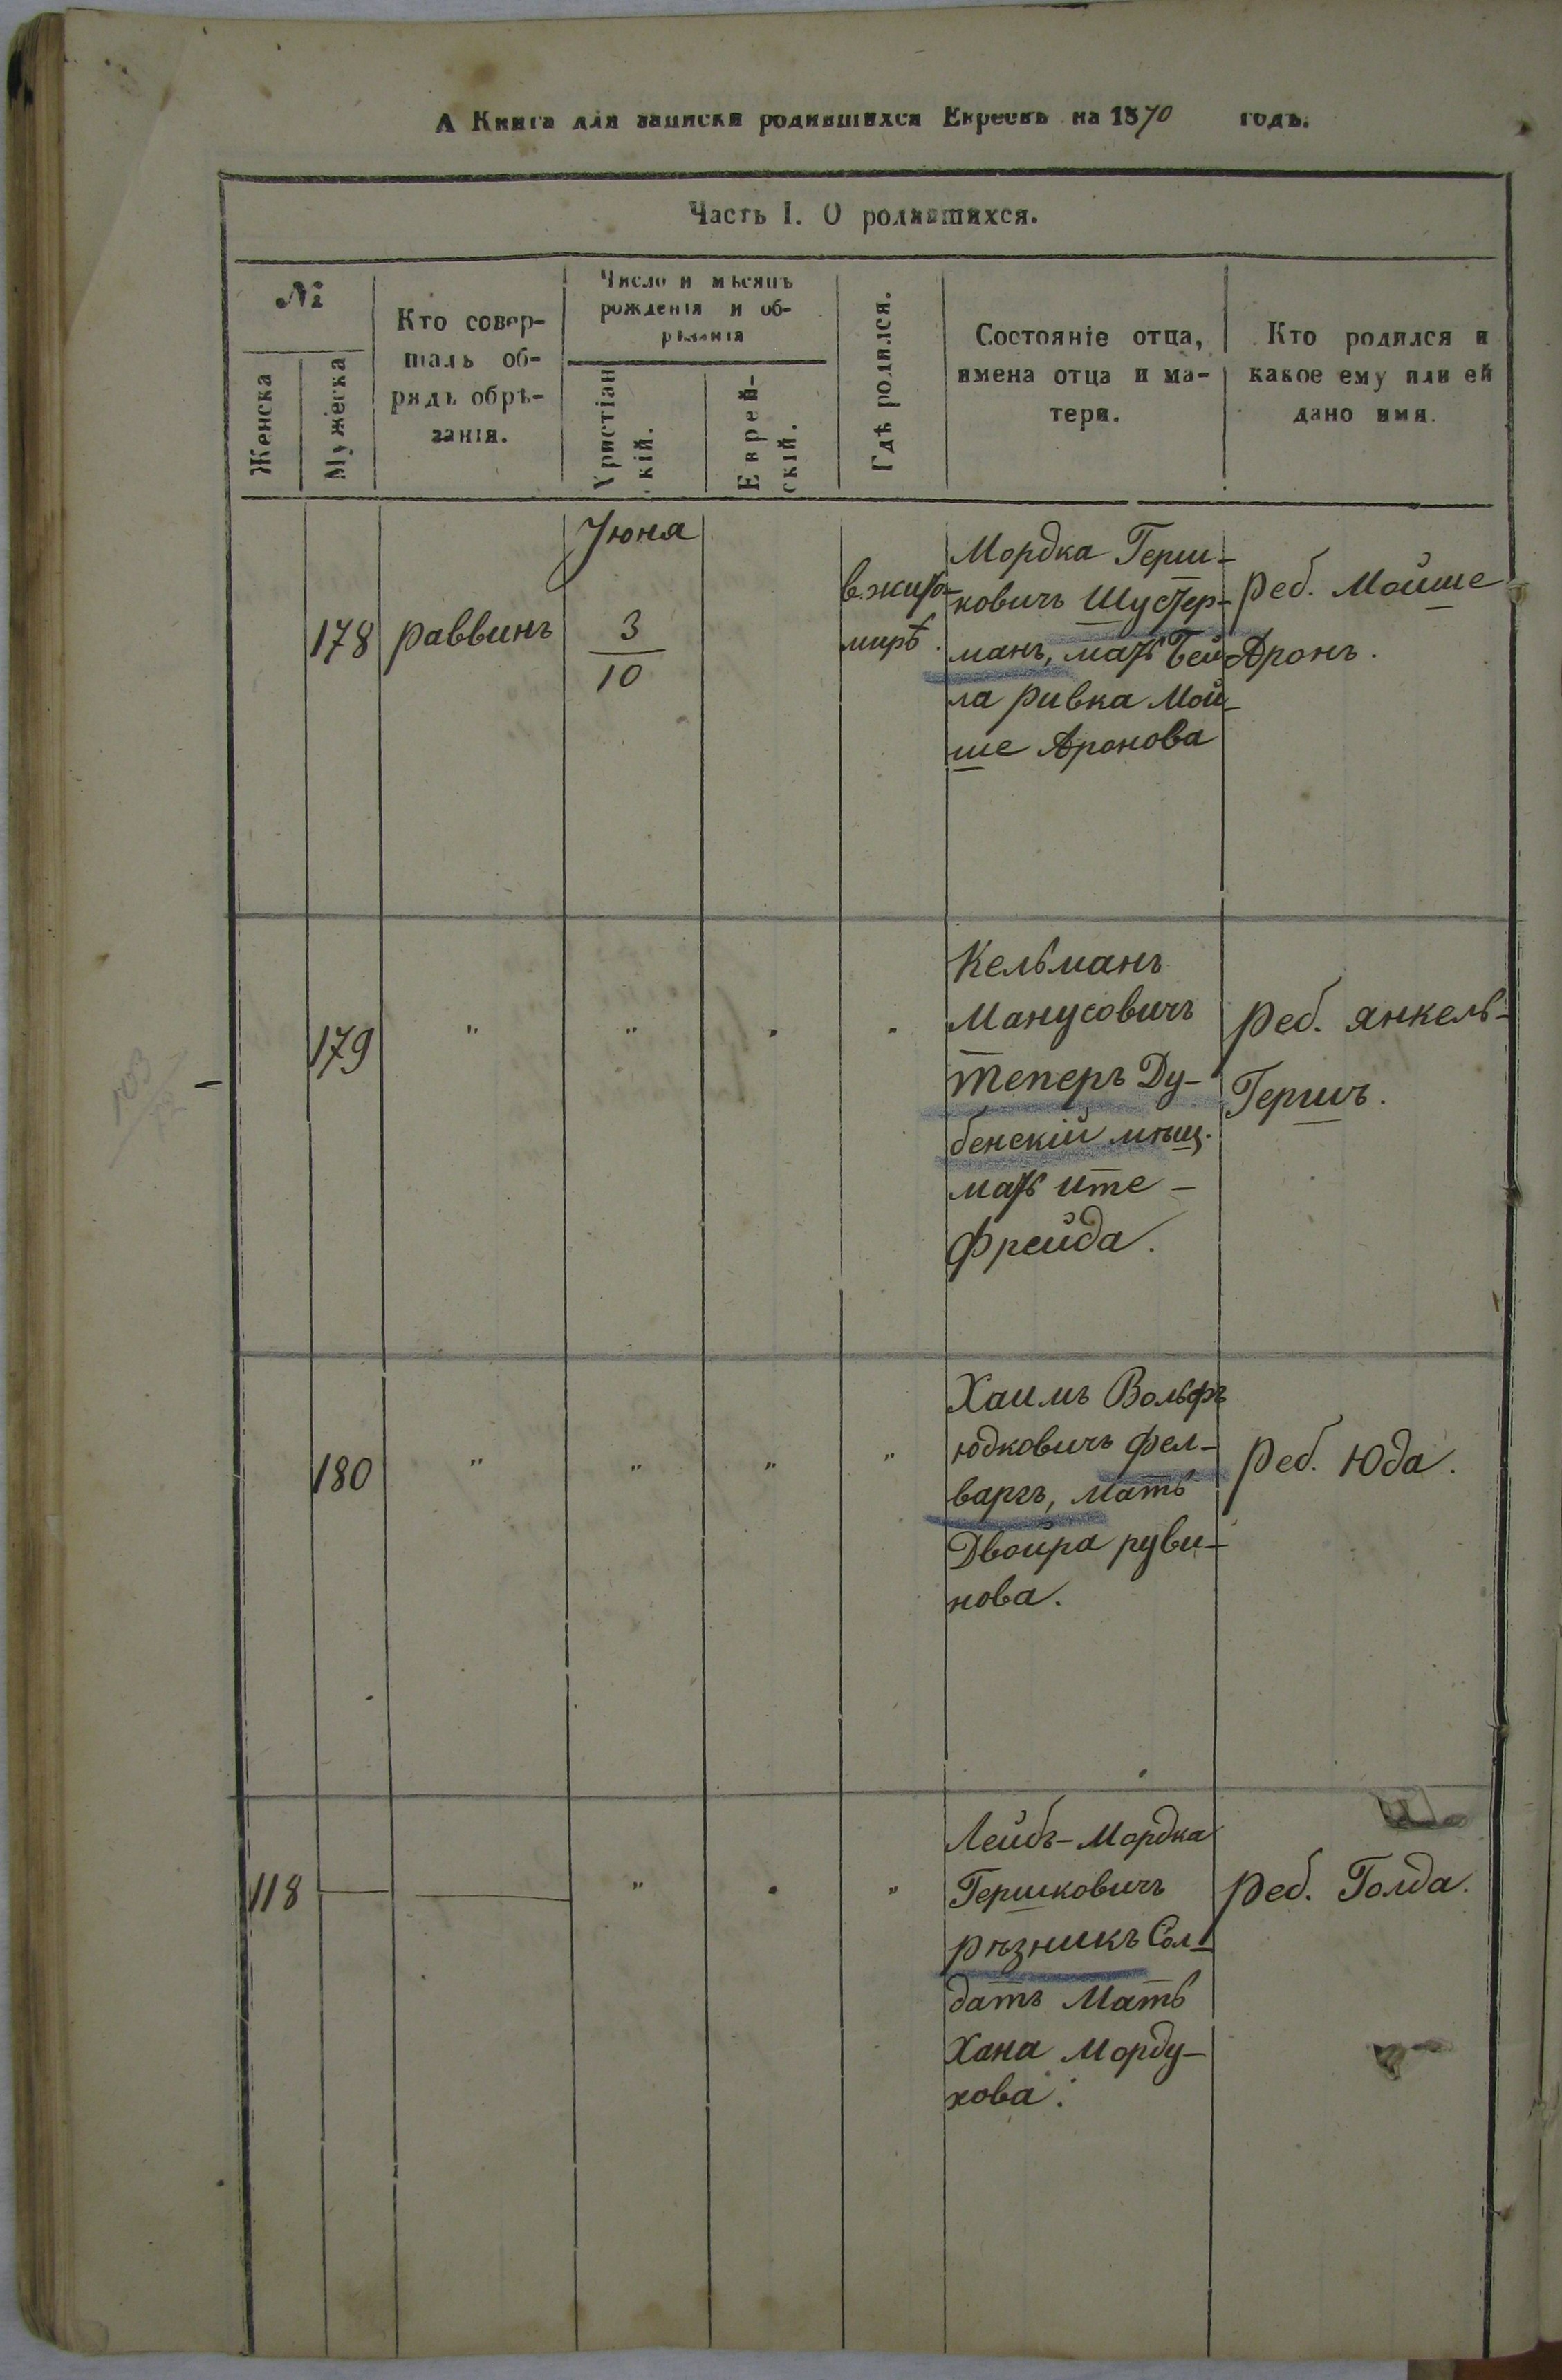 А Книга для записки родившихся Евреевъ на 1870 годъ.
Часть I. О родившихся.
№
Женска
Мужеска
Кто совер-
шалъ об-
рядъ обрѣ-
занія.
Число и мѣсяцъ
рожденія и об-
рѣзанія
Христіан
скій.
Еврей-
скій.
Гдѣ родился.
Состояніе отца,
имена отца и ма-
тери.
Кто родился и
какое ему или ей
дано имя.
Июня
178
раввинъ
3
10
в жито-
мирѣ.
Мордка Герш-
ковичъ Шустер-
манъ, мать Бей
ла Ривка Мой-
ше Аронова
Реб. Мойше
Аронъ.
179
"
"
"
"
Кельманъ
Манусовичъ
Теперъ Ду-
бенскій мѣщ.
мать ите-
Фрейда.
Реб. янкель-
Гершъ.
180
"
"
"
"
Хаимъ Вольфъ
юдковичъ фел-
варгъ, мать
Двойра руви-
нова.
Реб. Юда.
118
"
"
"
Лейбъ-Мордка
Гершковичъ
рѣзникъ Сол-
датъ Мать
Хана Морду-
хова.
Реб. Голда.